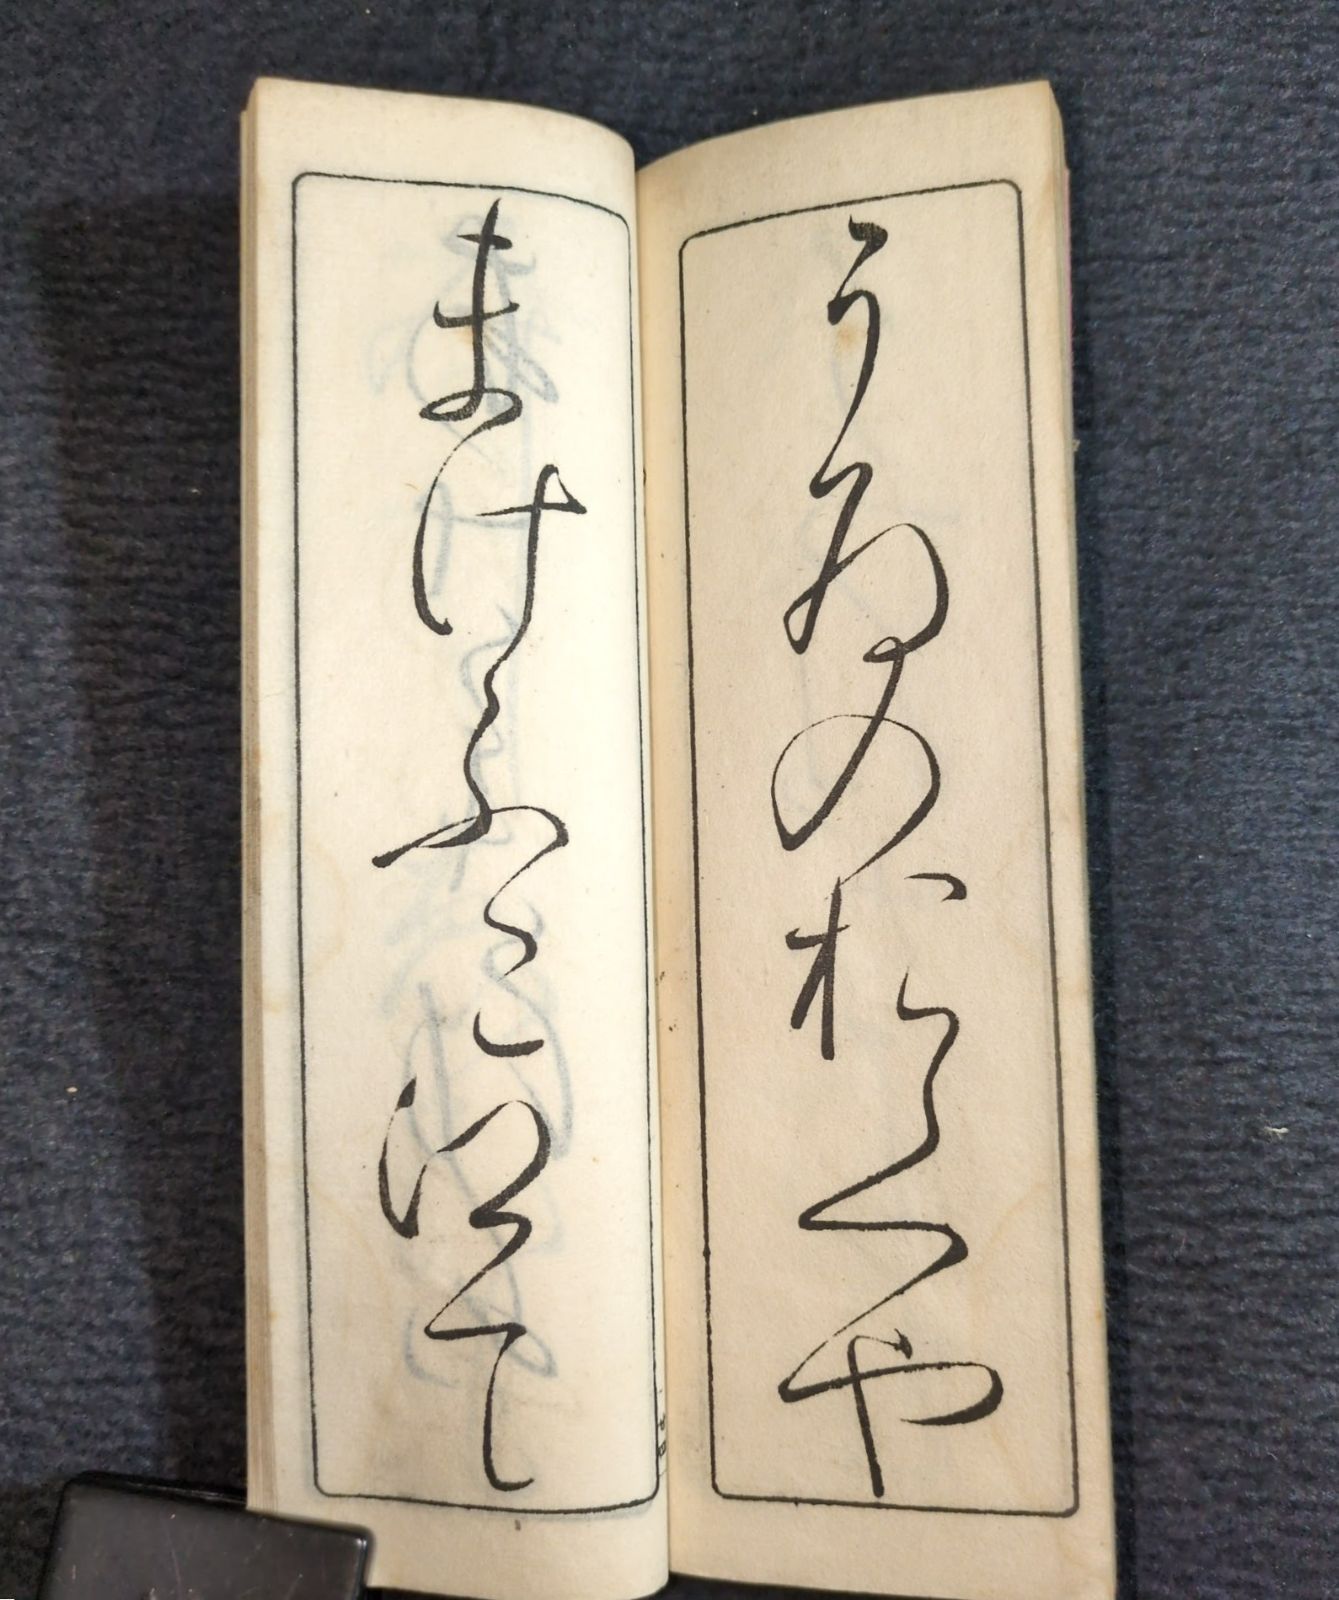 うゐのおくや
まけふこえて